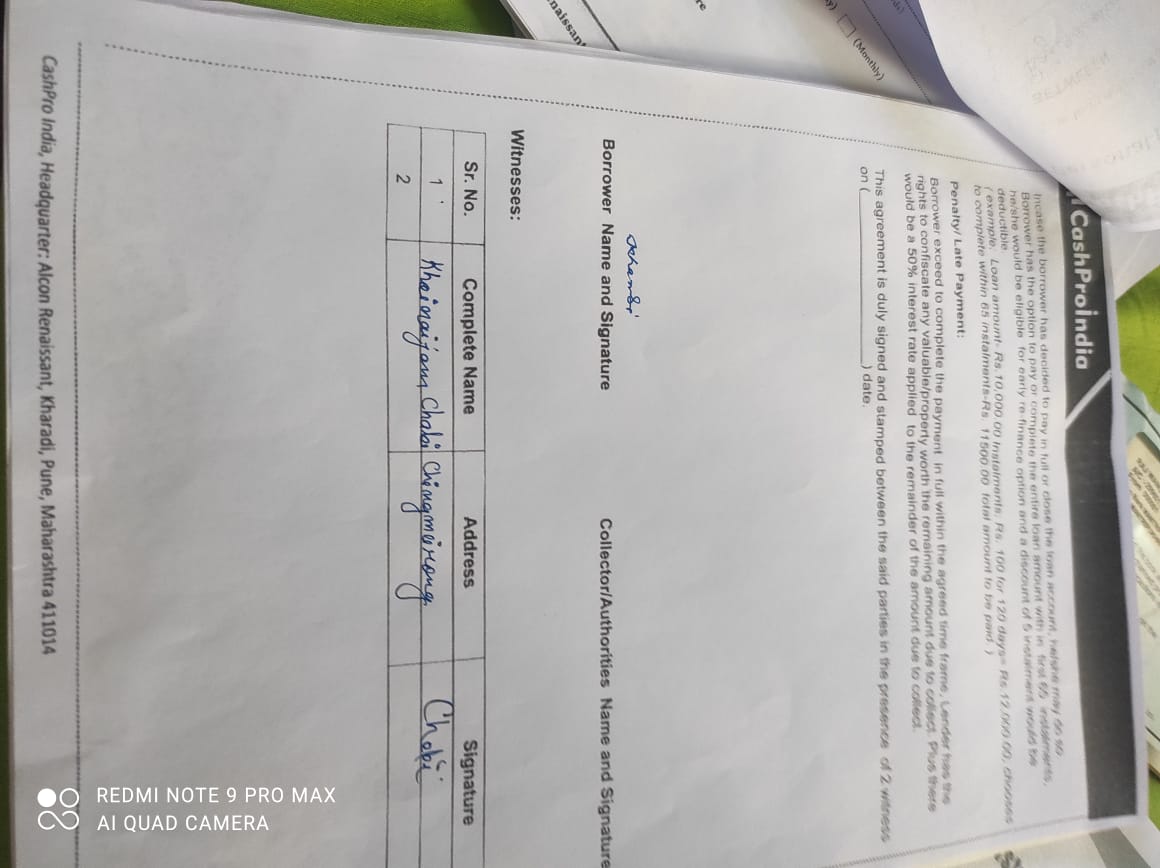 CashProindia
Incase the borrower has decided to pay in full or close the loan account, he/she may do so
Borrower has the option to pay or complete the entire loan amount with in first 65 instalments,
he/she would be eligible for early re-finance option and a discount of 5 instalment would be
deductible.
( example. Loan amount- Rs.10,000.00 Instalments: Rs. 100 for 120 days= Rs.12,000.00, chooses
to complete within 65 instalments-Rs. 11500.00 total amount to be paid.)
Penalty/ Late Payment:
Borrower exceed to complete the payment in full within the agreed time frame, Lender has the
rights to confiscate any valuable/property worth the remaining amount due to collect. Plus there
would be a 50% interest rate applied to the remainder of the amount due to collect.
This agreement is duly signed and stamped between the said parties in the presence of 2 witness
on (____________________) date.
Borrower Name and Signature Collector/Authorities Name and Signature
Witnesses:
Sr. No. Complete Name Address Signature
1 Khainaijam Chabi Chingmeirong Chabi
2
CashPro India, Headquarter: Alcon Renaissant, Kharadi, Pune, Maharashtra 411014
(Monthly)
naissant
REDMI NOTE 9 PRO MAX
AI QUAD CAMERA